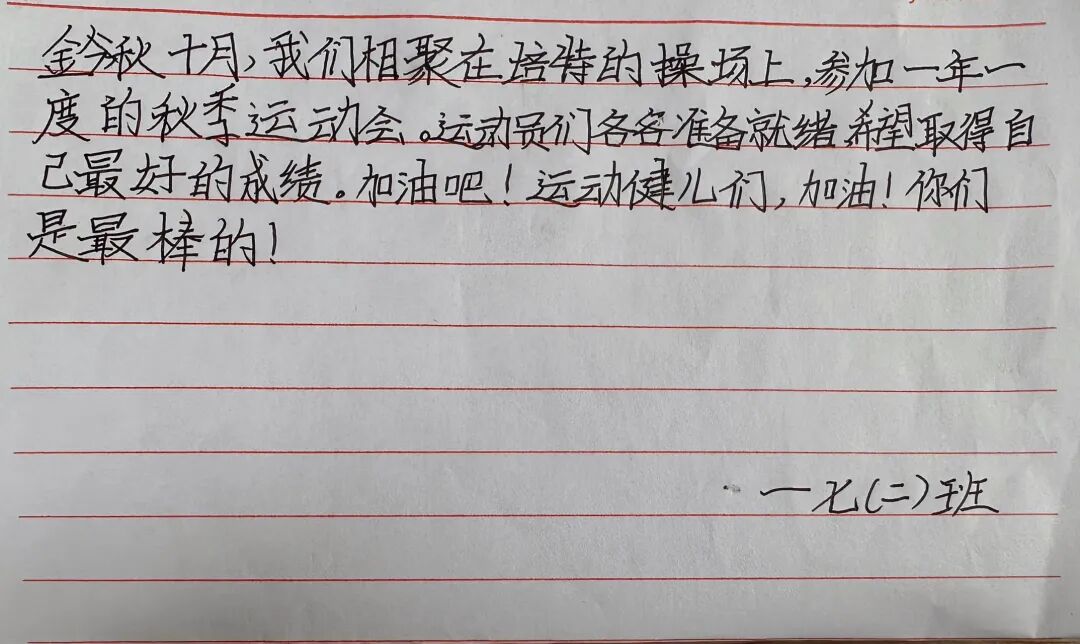 金秋十月,我们相聚在培特的操场上,参加一年一
度的秋季运动会。运动员们各各准备就绪希望取得自
己最好的成绩。加油吧!运动健儿们,加油!你们
是最棒的!
一七(二)班